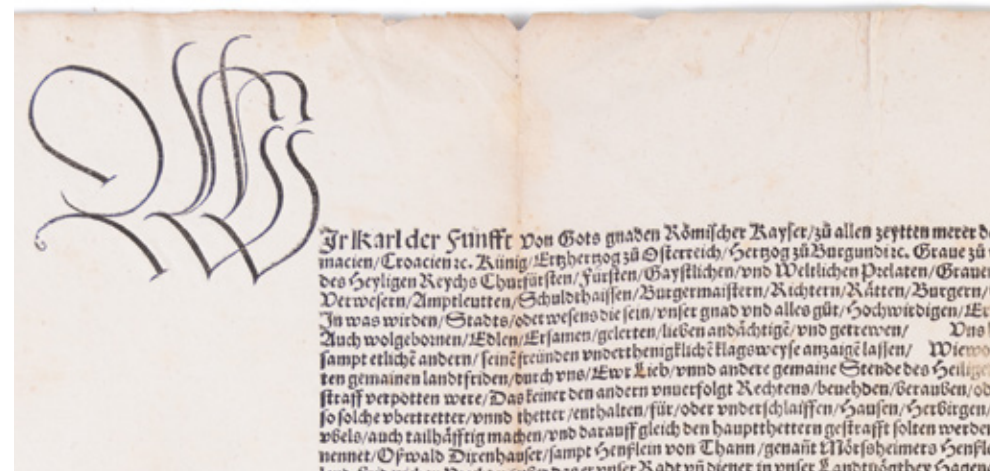 WIr Karl der Funfft von Gots gnaden Römischer Kayser/zů allen zeytten merer de
macien/Croacien ꝛc. Künig/Ertzhertzog zů Osterreich/Hertzog zů Burgundi ꝛc. Graue zů
des Heyligen Reychs Churfürsten/Fürsten/Gaystlichen/vnd Weltlichen Prelaten/Grauen
Verwesern/Amptleutten/Schuldthaissen/Burgermaistern/Richtern/Rätten/Burgern/
In was wirden/Stadts/oder wesens die sein/vnser gnad vnd alles gůt/Hochwirdigen/Er
Auch wolgebornen/Edlen/Ersamen/gelerten/lieben andächtigē/vnd getrewen/ Vns
sampt etlichē andern/seinē freünden vnderthenigklichē klagsweyse anzaigē lassen/ Wiewo
ten gemainen landtfriden/durch vns/Ewr Lieb/vnnd andere gemaine Stende des Heilige
straff verpotten were/Das keiner den andern vnuerfolgt Rechtens/beuehden/berauben/od
so solche vbertretter/vnnd thetter/enthalten/für/oder vnderschlaiffen/Hausen/Herbirgen/
vbels/auch tailhäfftig machen/vnd darauff gleich den haupttthettern gestrafft solten werden
nennet/Oßwald Direnhauser/sampt Henßlein von Thann/genañt Mörtsheimers Henßle
vnser Radt vñ diener in vnser Landtuogthey Hagen